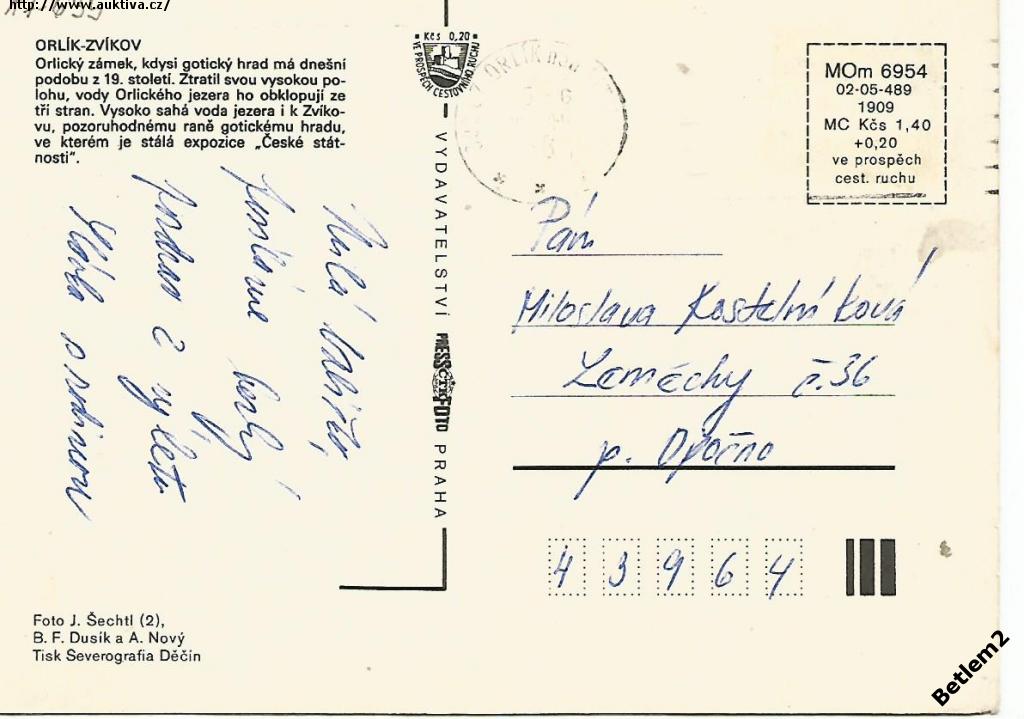 http://www.auktiva.cz/
ORLÍK-ZVÍKOV
Orlický zámek, kdysi gotický hrad má dnešní
podobu z 19. století. Ztratil svou vysokou po-
lohu, vody Orlického jezera ho obklopují ze
tří stran. Vysoko sahá voda jezera i k Zvíko-
vu, pozoruhodnému raně gotickému hradu,
ve kterém je stálá expozice „České stát-
nosti".
Milá babičko,
posíláme hezký
pozdrav z výletu
Vlasta s rodinou
Foto J. Šechtl (2),
B. F. Dusík a A. Nový
Tisk Severografia Děčín
Kčs 0,20
VE PROSPĚCH CESTOVNÍHO RUCHU
VYDAVATELSTVÍ PRESSFOTO PRAHA
ČTK
ORLÍK NAD
MOm 6954
02-05-489
1909
MC Kčs 1,40
+0,20
ve prospěch
cest. ruchu
Pání
Miloslava Kostelníková
Zeměchy č.36
p. Opočno
43964
Betlem2